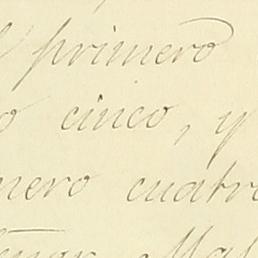 primero
cinco, y
mero cuatro